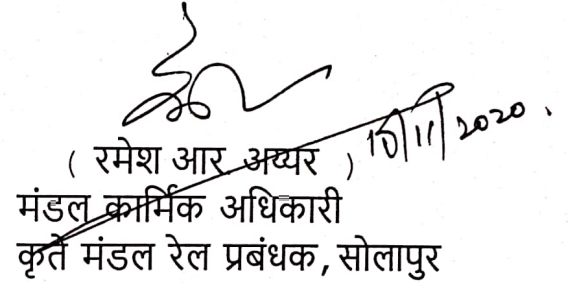 ( रमेश आर. अय्यर ) 10/11/2020.
मंडल कार्मिक अधिकारी
कृते मंडल रेल प्रबंधक, सोलापुर